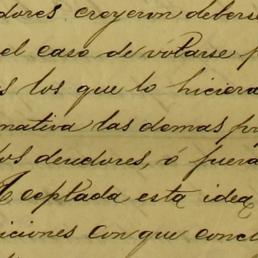 dores creyeron deberse
el caso de votarse p
s los que lo hiciera
mativa las demas pr
los deudores, ó fuera
Aceptada esta idea
iciones con que concl